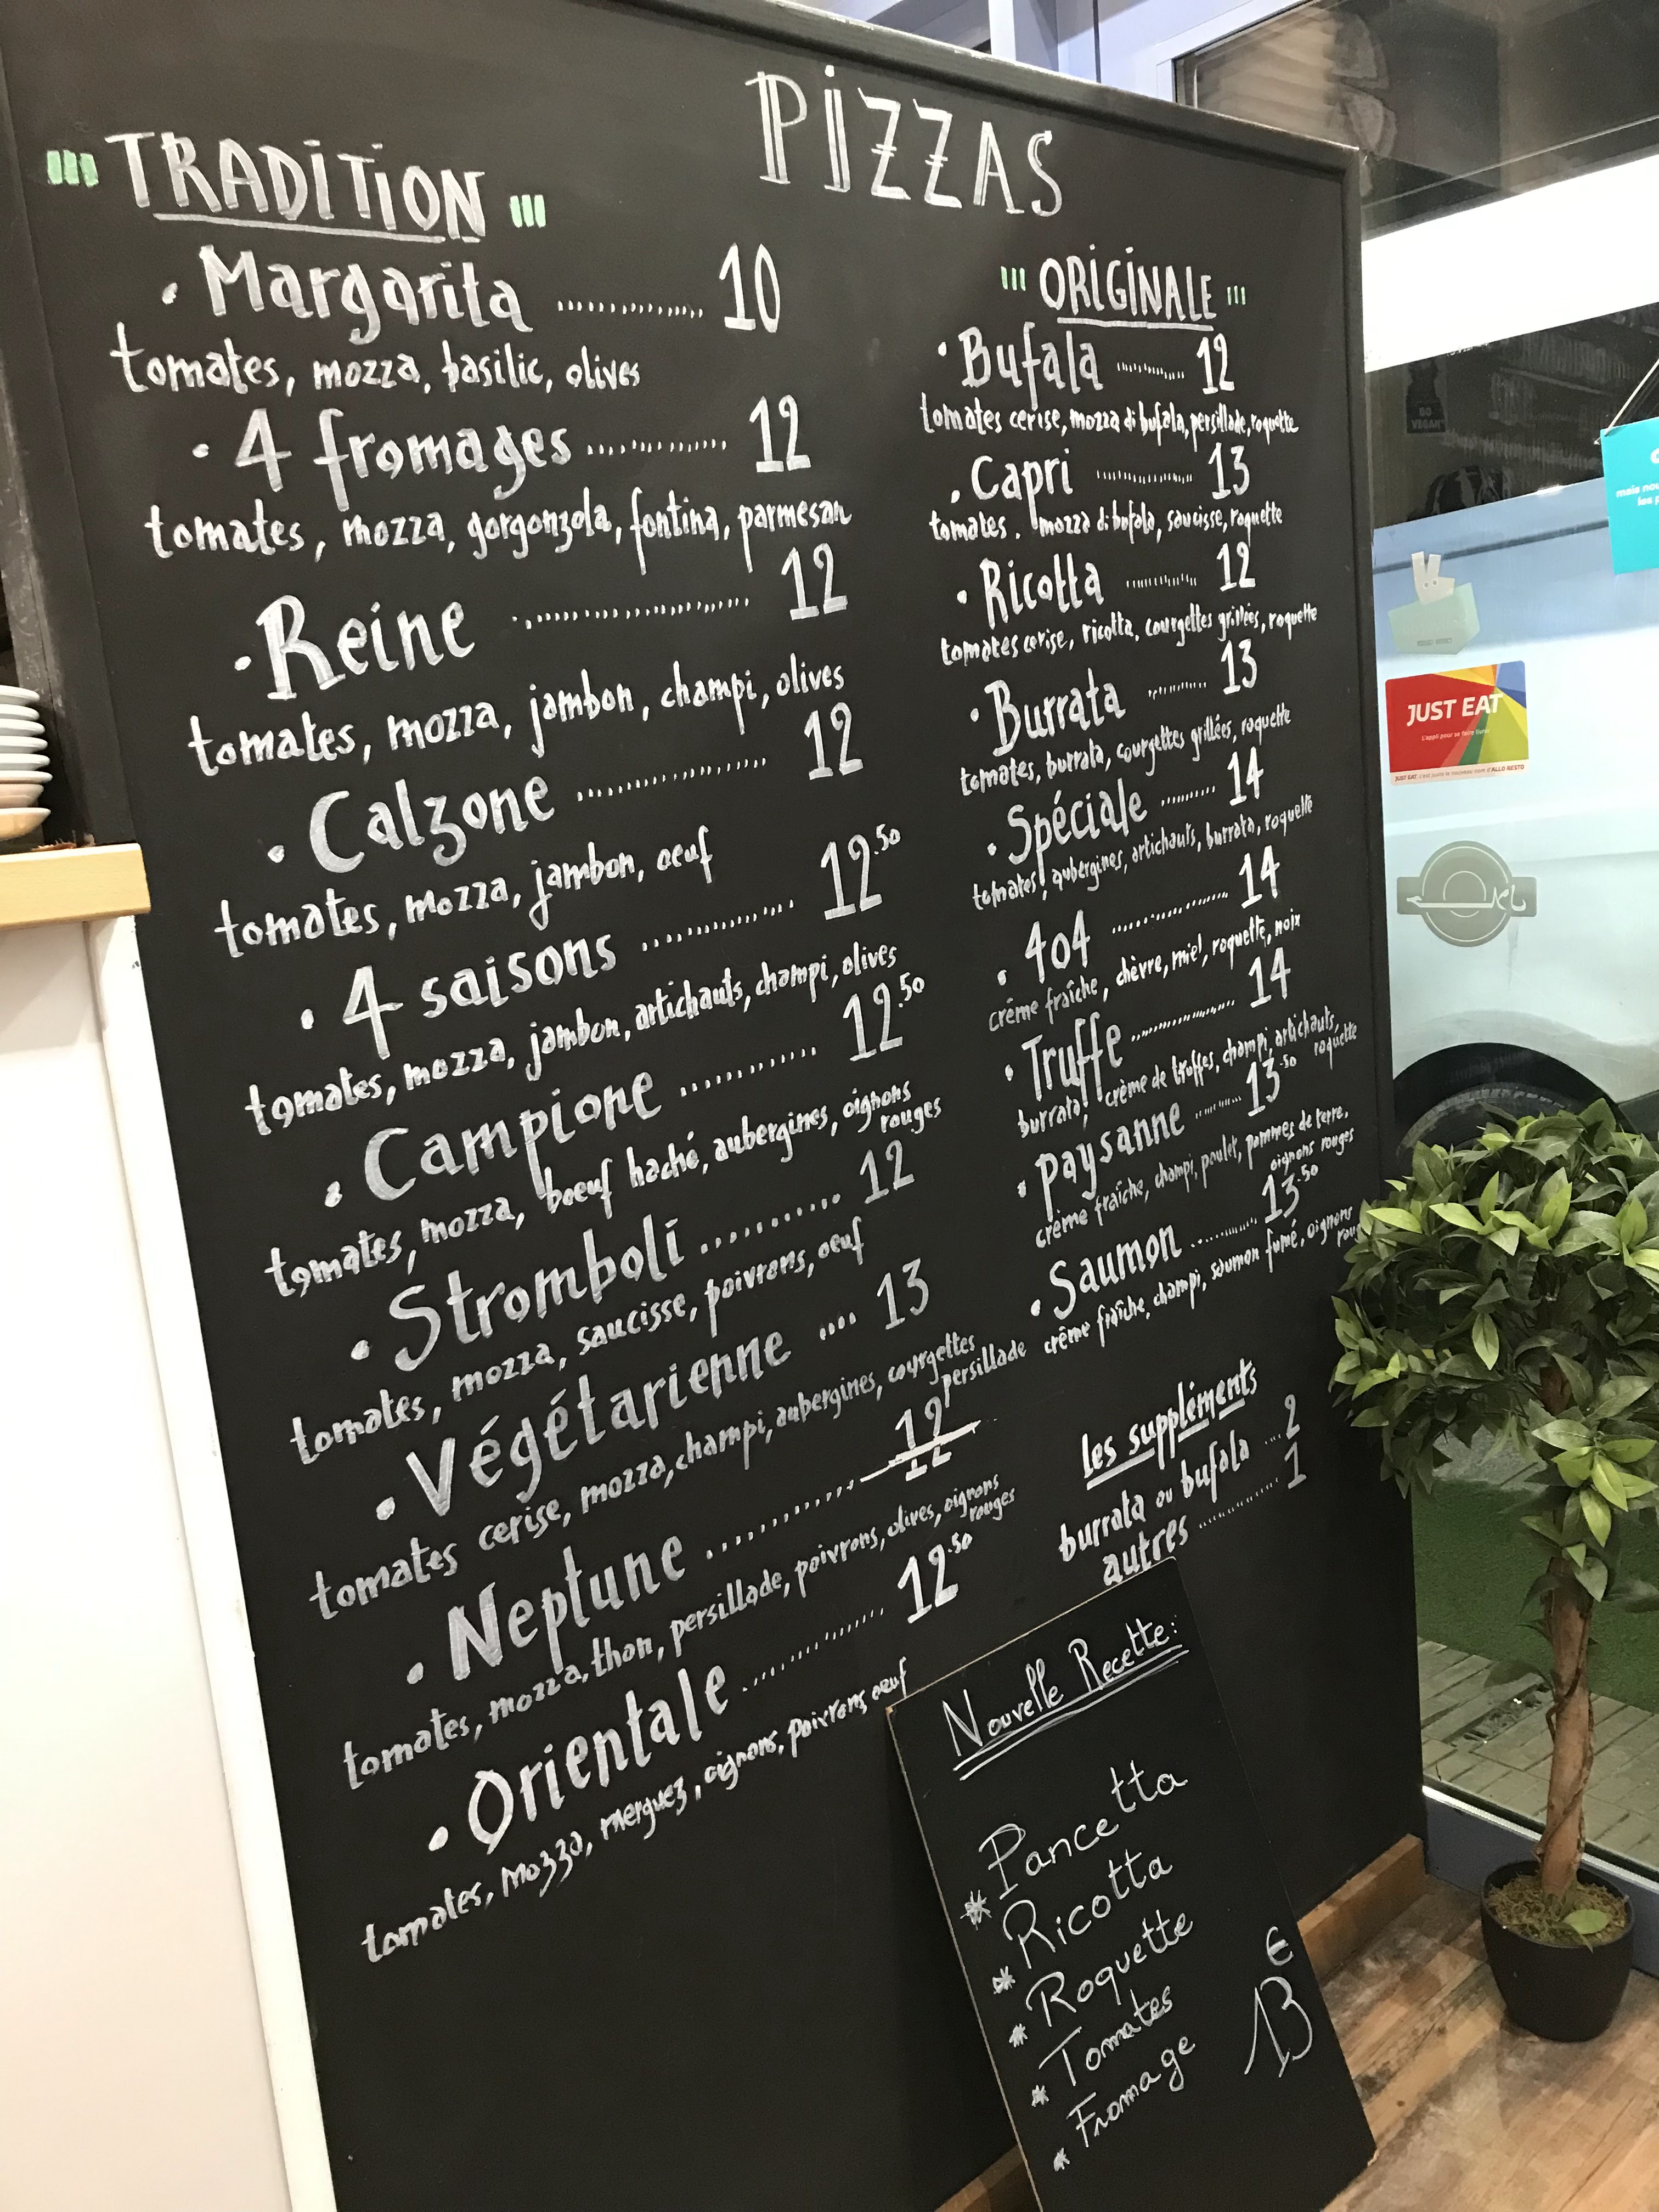 PIZZAS
TRADITION
• Margarita ............... 10
tomates, mozza, basilic, olives
• 4 fromages .............. 12
tomates, mozza, gorgonzola, fontina, parmesan
• Reine ........................ 12
tomates, mozza, jambon, champi, olives
• Calzone .................. 12
tomates, mozza, jambon, oeuf
• 4 saisons .............. 12.50
tomates, mozza, jambon, artichauts, champi, olives
• Campione ............ 12.50
tomates, mozza, boeuf haché, aubergines, oignons
rouges
• Stromboli .......... 12
tomates, mozza, saucisse, poivrons, oeuf
• Végétarienne .... 13
tomates cerise, mozza, champi, aubergines, courgettes
persillade
• Neptune ............
tomates, mozza, thon, persillade, poivrons, olives, oignons
rouges
• Orientale ............... 12.50
tomates, mozza, merguez, oignons, poivrons oeuf
ORIGINALE
• Bufala ........... 12
tomates cerise, mozza di bufala, persillade, roquette
• Capri ............... 13
tomates. mozza di bufala, saucisse, roquette
• Ricotta ........... 12
tomates cerise, ricotta, courgettes grillées, roquette
• Burrata ......... 13
tomates, burrata, courgettes grillées, roquette
• Spéciale ......... 14
tomates, aubergines, artichauts, burrata, roquette
• 404 ................ 14
crème fraîche, chèvre, miel, roquette, noix
• Truffe ............... 14
burrata, crème de truffes, champi, artichauts,
roquette
• Paysanne ........ 13.50
crème fraîche, champi, poulet, pommes de terre,
oignons rouges
• Saumon .......... 13.50
crème fraîche, champi, saumon fumé, oignons
les suppléments
burrata ou bufala ... 2
autres ............ 1
Nouvelle Recette:
* Pancetta
* Ricotta
* Roquette
* Tomates
* Fromage
€
13
GO
VEGAN
JUST EAT
L'appli pour se faire livrer
JUST EAT, c'est juste le nouveau nom d'ALLO RESTO
mais nou
les p